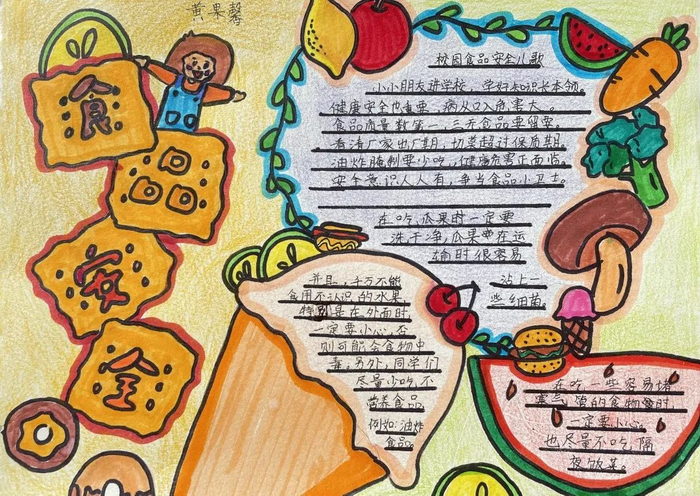 黄果馨
食品安全
校园食品安全儿歌
小小朋友进学校,学好知识长本领。
健康安全也重要,病从口入危害大。
食品质量数第一,三无食品要留意。
看清厂家出厂期,切莫超过保质期。
油炸腌制要少吃,健康危害正面临。
安全意识人人有,争当食品小卫士。
在吃瓜果时一定要
洗干净,瓜果要在运
输时很容易
沾上一
些细菌。
并且,千万不能
食用不认识的水果
特别是在外面时
一定要小心,否
则可能会食物中
毒,另外,同学们
尽量少吃不
营养食品
例如:油炸
食品。
在吃一些容易堵
塞气管的食物时
一定要小心。
也尽量不吃隔
夜饭菜。